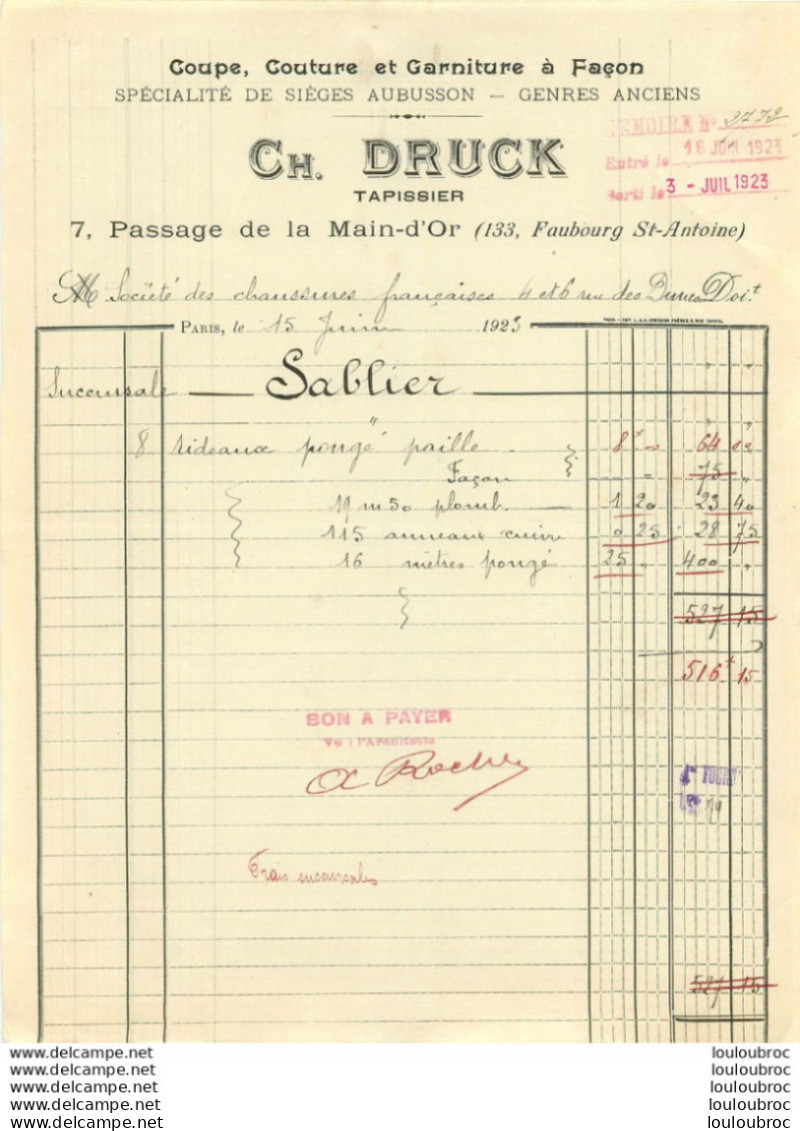 Coupe, Couture et Garniture à Façon
SPÉCIALITÉ DE SIÈGES AUBUSSON — GENRES ANCIENS
CH. DRUCK
TAPISSIER
7, Passage de la Main-d'Or (133, Faubourg St-Antoine)
MEMOIRE No 2772
Entré le 16 JUIN 1923
Sorti le 3 - JUIL 1923
M Société des chaussures françaises 4 et 6 rue des Doit
PARIS, le 15 Juin 1923
Succursale — Sablier
8 rideaux pongé paille 8 " 64 "
Façon " " 75 "
19 m 50 plomb. 1 20 23 40
115 anneaux cuivre 0 25 28 75
16 mètres pongé 25 " 400 "
527 15
516 15
BON A PAYER
Vu : l'Architecte
Frais succursales
527 15
www.delcampe.net louloubroc
www.delcampe.net louloubroc
www.delcampe.net louloubroc
www.delcampe.net louloubroc
www.delcampe.net louloubroc